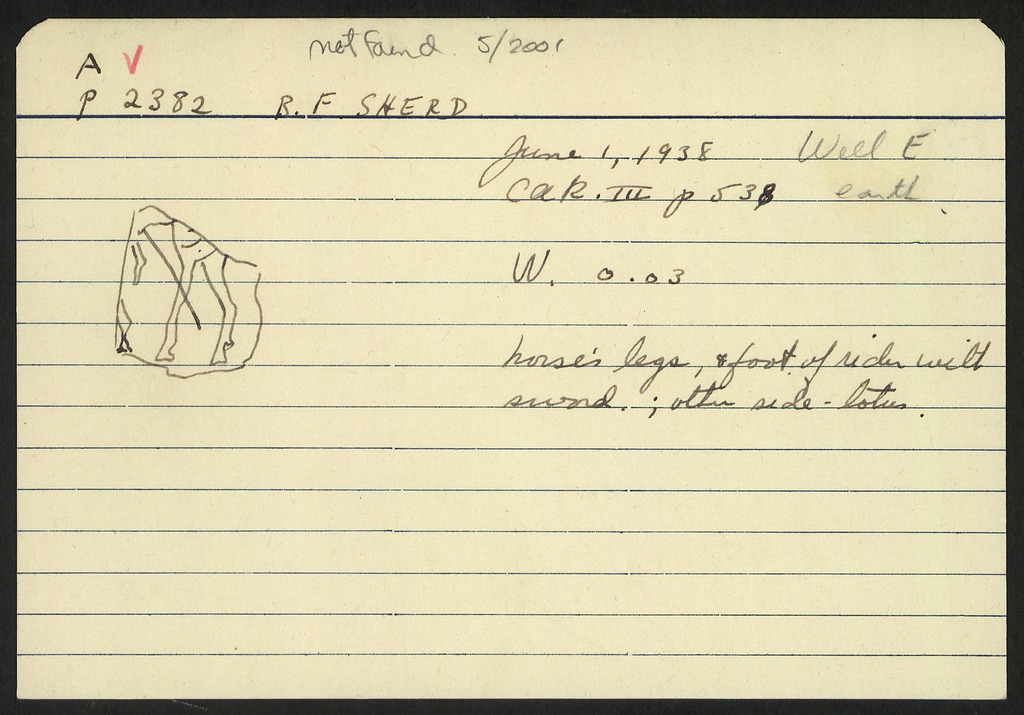 not found 5/2001
A V
P 2382 B.F SHERD
June 1, 1938 Well E
CaR. III p 538 earth
W. 0.03
horse's legs, & foot of rider with
sword. ; other side - lotus.